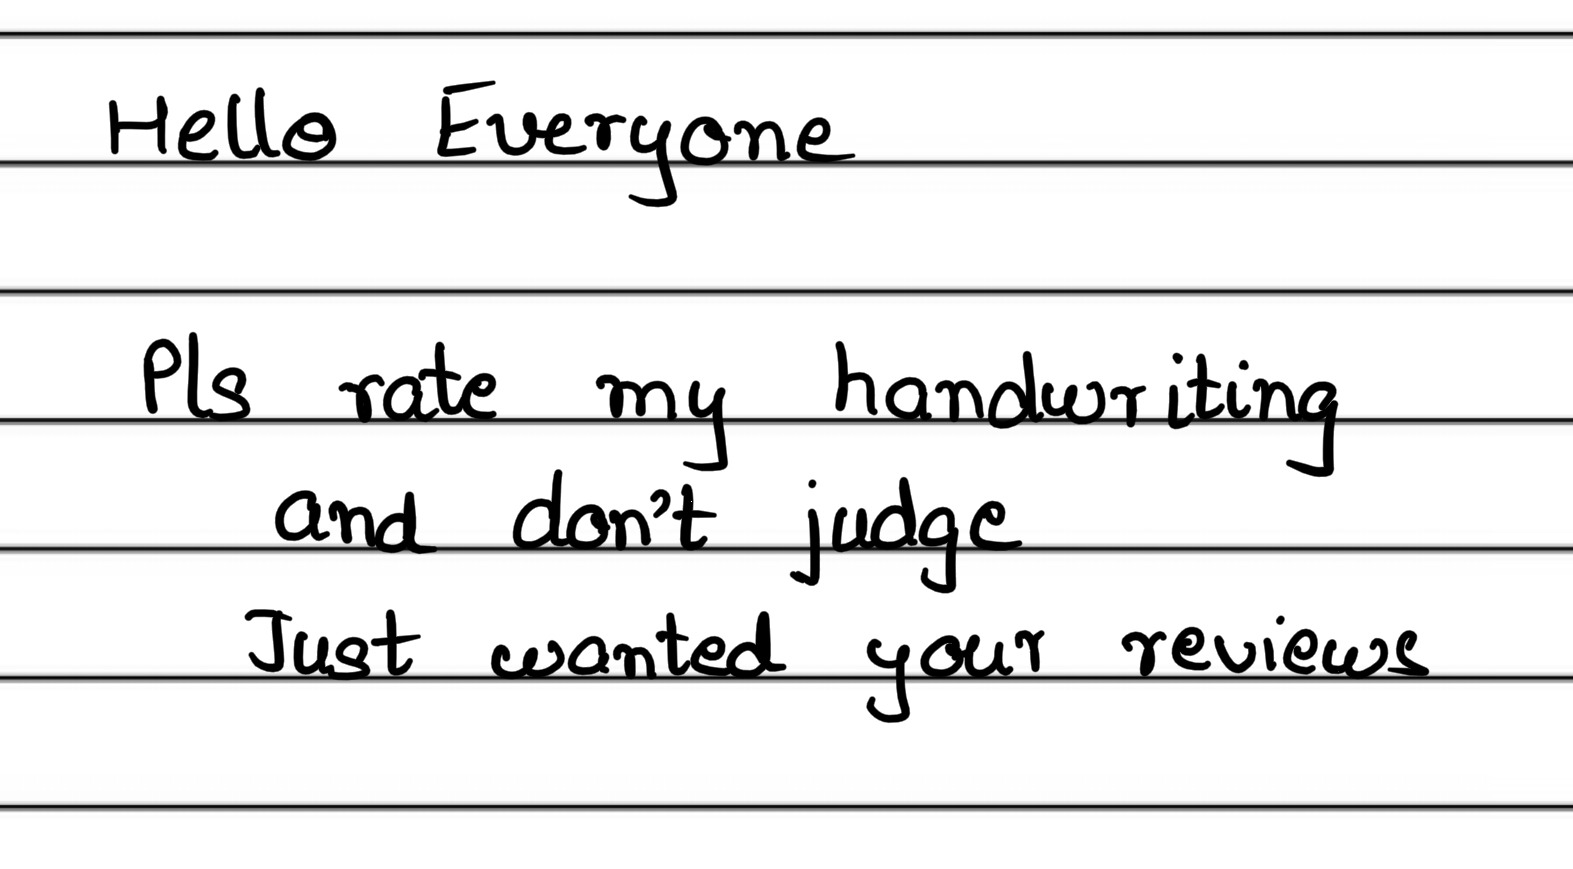 Hello Everyone
Pls rate my handwriting
and don't judge
Just wanted your reviews